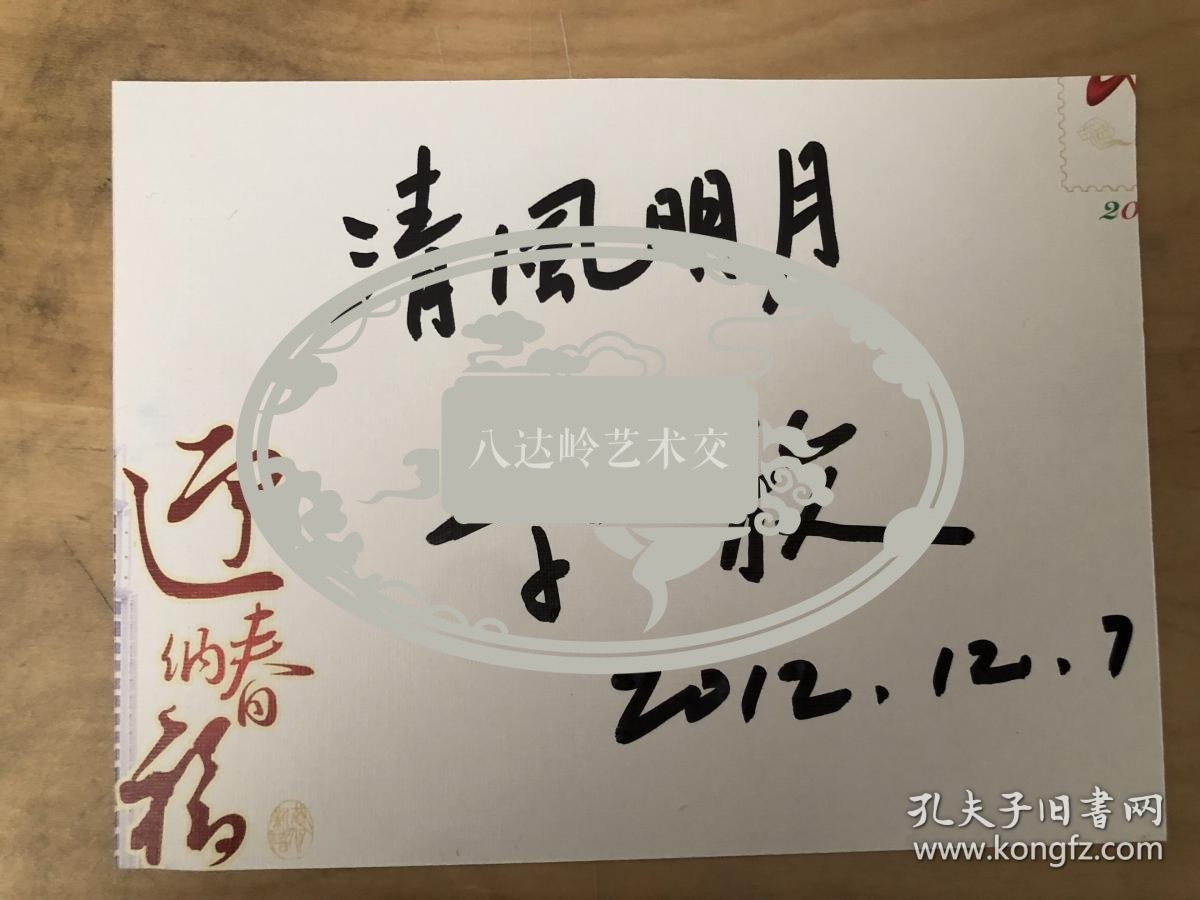 清風明月
八达岭艺术交
2012.12.7
迎春
纳福
20
孔夫子旧書网
www.kongfz.com